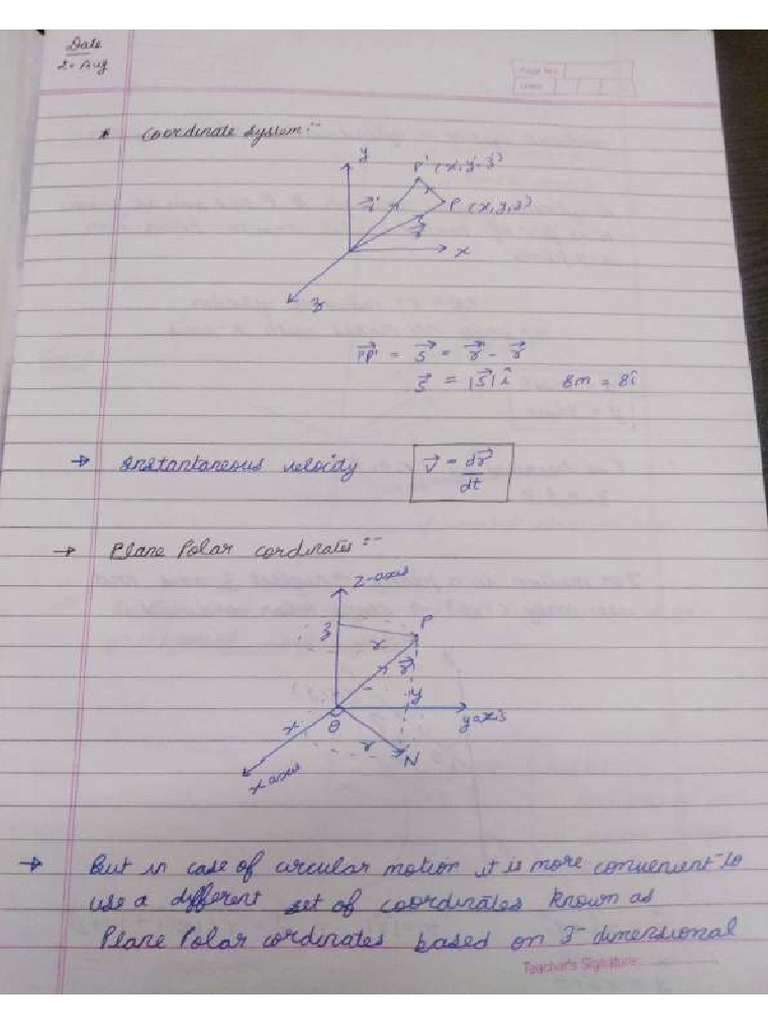 Date
2. Aug
Page No.
Date:
* Coordinate System:-
y
P' (x', y', z')
P (x, y, z)
x
z
PP' = S = r' - r
S = |S| î 8m = 8î
→ Instantaneous velocity v = dr/dt
→ Plane Polar cordinates:-
z-axis
z
P
r
r
y
y axis
θ
x
r
N
x axis
→ But in case of circular motion it is more convenient to
use a different set of coordinates known as
Plane Polar cordinates based on 3-dimensional
Teacher's Signature